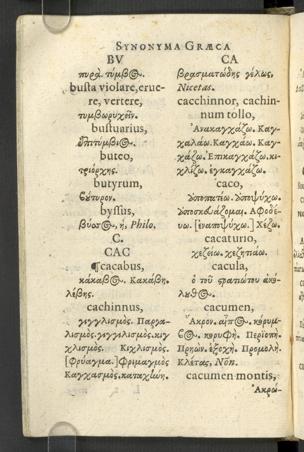 SYNONYMA GRÆCA
BV
πυρὰ. τύμβος.
busta violare, erue-
re, vertere,
τυμβωρυχεῖν.
bustuarius,
ἐπιτύμβιος.
buteo,
τριόρχης.
butyrum,
βούτυρον.
byssus,
βύσσος, ἡ. Philo.
C.
CAC
¶cacabus,
κάκαβος. Κακάβη.
λέβης.
cachinnus,
γεγγλισμὸς. Παρα-
λισμὸς. γεγγελισμὸς. κιγ
χλισμὸς. Κιχλισμὸς.
[Φρύαγμα.] Φριμαγμὸς
Καγχασμὸς. καταχήνη.
CA
βρασματώδης γέλως.
Nicetas.
cacchinnor, cachin-
num tollo,
Ἀνακαγχάζω. Καγ-
χαλάω. Καγχάω. Καγ-
χάζω. Ἐπικαγχάζω. κι-
χλίζω. ἐγκαγχάζω.
caco,
ὑποπατέω. Ὑποψύχω.
Ἀφοδεύ-
ω. [ἐναποψύχω.] Χέζω.
cacaturio,
χεζείω. χεζητιάω.
cacula,
ὁ τοῦ στρατιώτου ἀκό-
λουθος.
cacumen,
Ἄκρον. αἶπος. κόρυμ-
βος. κορυφή. Περιωπή.
Πρηών. ἐξοχή. Προμολή.
Κλέτας. Νῶη.
cacumen montis,
Ἀκρώ-